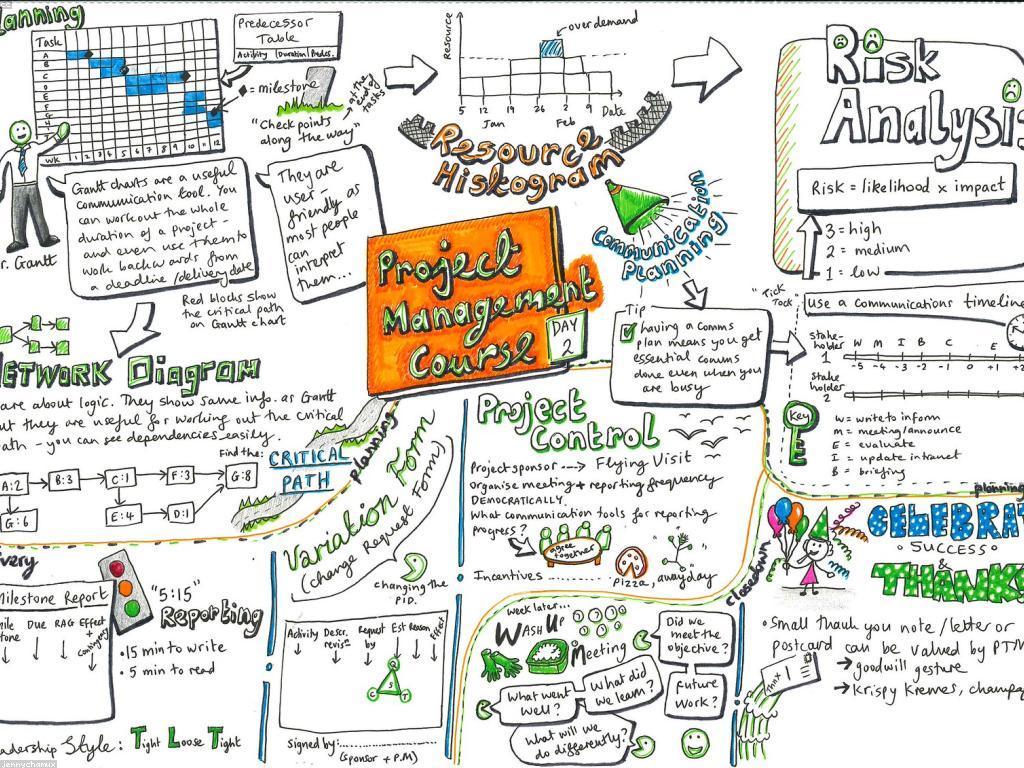 lanning
Task
A
B
C
D
E
F
G
H
I
WK 1 2 3 4 5 6 7 8 9 10 11 12
Predecessor
Table
Activity | Duration | Predes.
♦ = milestone
"Check points
along the way"
→ at the
end of
tasks
r. Gantt
Gantt charts are a useful
communication tool. You
can work out the whole
duration of a project -
and even use them to
work backwards from
a deadline / delivery date
They are
user-
friendly as
most people
can
interpret
them...
Red blocks show
the critical path
on Gantt chart
Resource
over demand
5 12 19 26 2 9 Date
Jan Feb
Resource
Histogram
Communication
Planning
Risk
Analysis
Risk = likelihood x impact
3 = high
2 = medium
1 = low
Project
Management
Course
DAY
2
Tip
having a comms
plan means you get
essential comms
done even when you
are busy
"Tick
Tock"
use a communications timeline
Stake-
holder
1
W M I B C E
-5 -4 -3 -2 -1 0 +1 +2
Stake
holder
2
Key
W = write to inform
M = meeting/announce
E = evaluate
I = update intranet
B = briefing
planning
ETWORK Diagram
are about logic. They show same info. as Gantt
ut they are useful for working out the critical
ath - you can see dependencies easily.
Find the:
CRITICAL
PATH
A:2 B:3 C:1 F:3 G:8
G:6 E:4 D:1
planning
Variation Form
(Change Request Form)
changing the
PID.
Activity Descr. revisn Request by Est Reason Effect
S
C T
signed by:...............
(sponsor + P.M)
Project
Control
Project sponsor ----> Flying Visit
organise meeting + reporting frequency
DEMOCRATICALLY
What communication tools for reporting
progress?
agree
together
Incentives .............. pizza, away day
very
Milestone Report
Mile
stone
Due RAG Effect
+
Contingency
"5:15"
Reporting
• 15 min to write
• 5 min to read
eadership Style: Tight Loose Tight
jennychamux
week later...
Wash Up
Meeting
Did we
meet the
objective?
What went
well?
What did
we learn?
Future
Work?
What will we
do differently?
closedown
CELEBRAT
• SUCCESS •
&
THANKS
• Small thank you note / letter or
postcard can be valued by PTM
→ goodwill gesture
→ Krispy Kremes, champag
Thnx